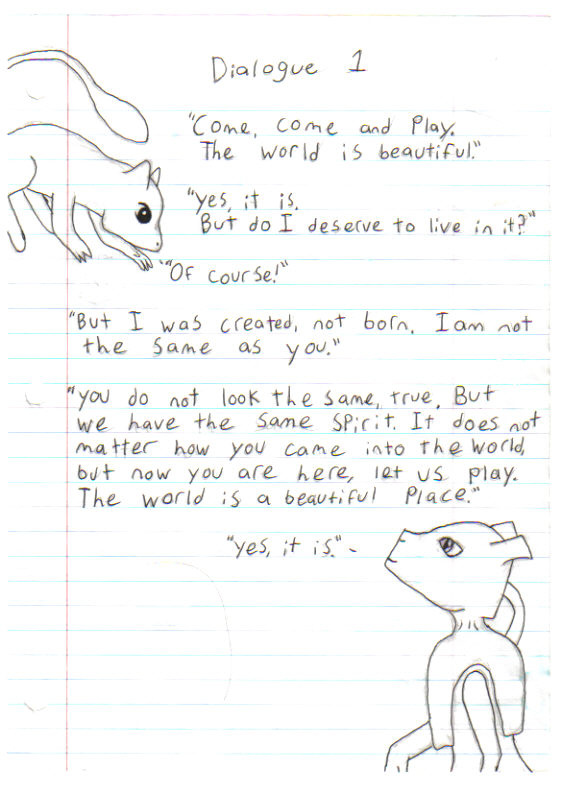 Dialogue 1
"Come, come and Play.
The world is beautiful."
"yes, it is.
But do I deserve to live in it?"
"Of course!"
"But I was created, not born. I am not
the same as you."
"you do not look the same, true, But
we have the same spirit. It does not
matter how you came into the world,
but now you are here, let us play.
The world is a beautiful Place."
"yes, it is."